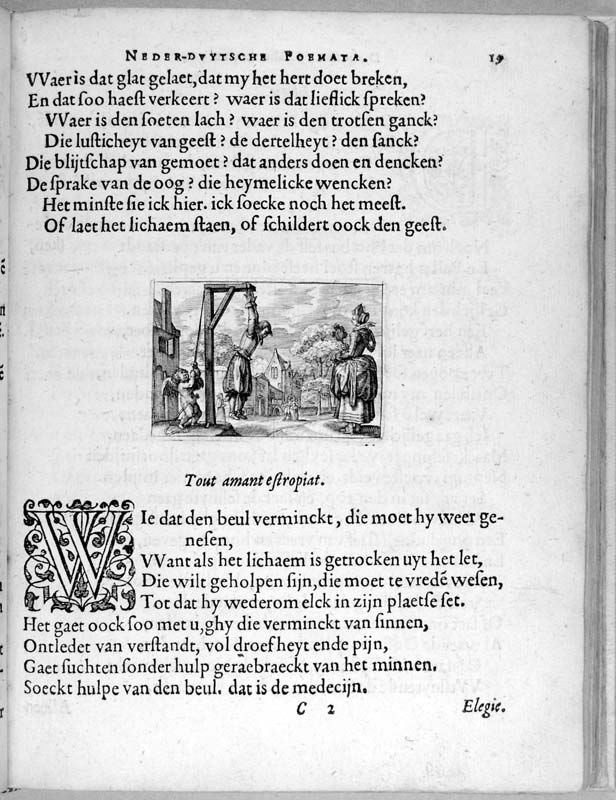 NEDER-DVYTSCHE POEMATA. 19
VVaer is dat glat gelaet, dat my het hert doet breken,
En dat ſoo haeſt verkeert? waer is dat lieflick ſpreken?
VVaer is den ſoeten lach? waer is den trotſen ganck?
Die luſticheyt van geeſt? de dertelheyt? den ſanck?
Die blijtſchap van gemoet? dat anders doen en dencken?
De ſprake van de oog? die heymelicke wencken?
Het minſte ſie ick hier. ick ſoecke noch het meeſt.
Of laet het lichaem ſtaen, of ſchildert oock den geeſt.
Tout amant eſtropiat.
WIe dat den beul verminckt, die moet hy weer ge-
neſen,
VVant als het lichaem is getrocken uyt het let,
Die wilt geholpen ſijn, die moet te vredē weſen,
Tot dat hy wederom elck in zijn plaetſe ſet.
Het gaet oock ſoo met u, ghy die verminckt van ſinnen,
Ontledet van verſtandt, vol droefheyt ende pijn,
Gaet ſuchten ſonder hulp geraebraeckt van het minnen.
Soeckt hulpe van den beul. dat is de medecijn.
C 2 Elegie.